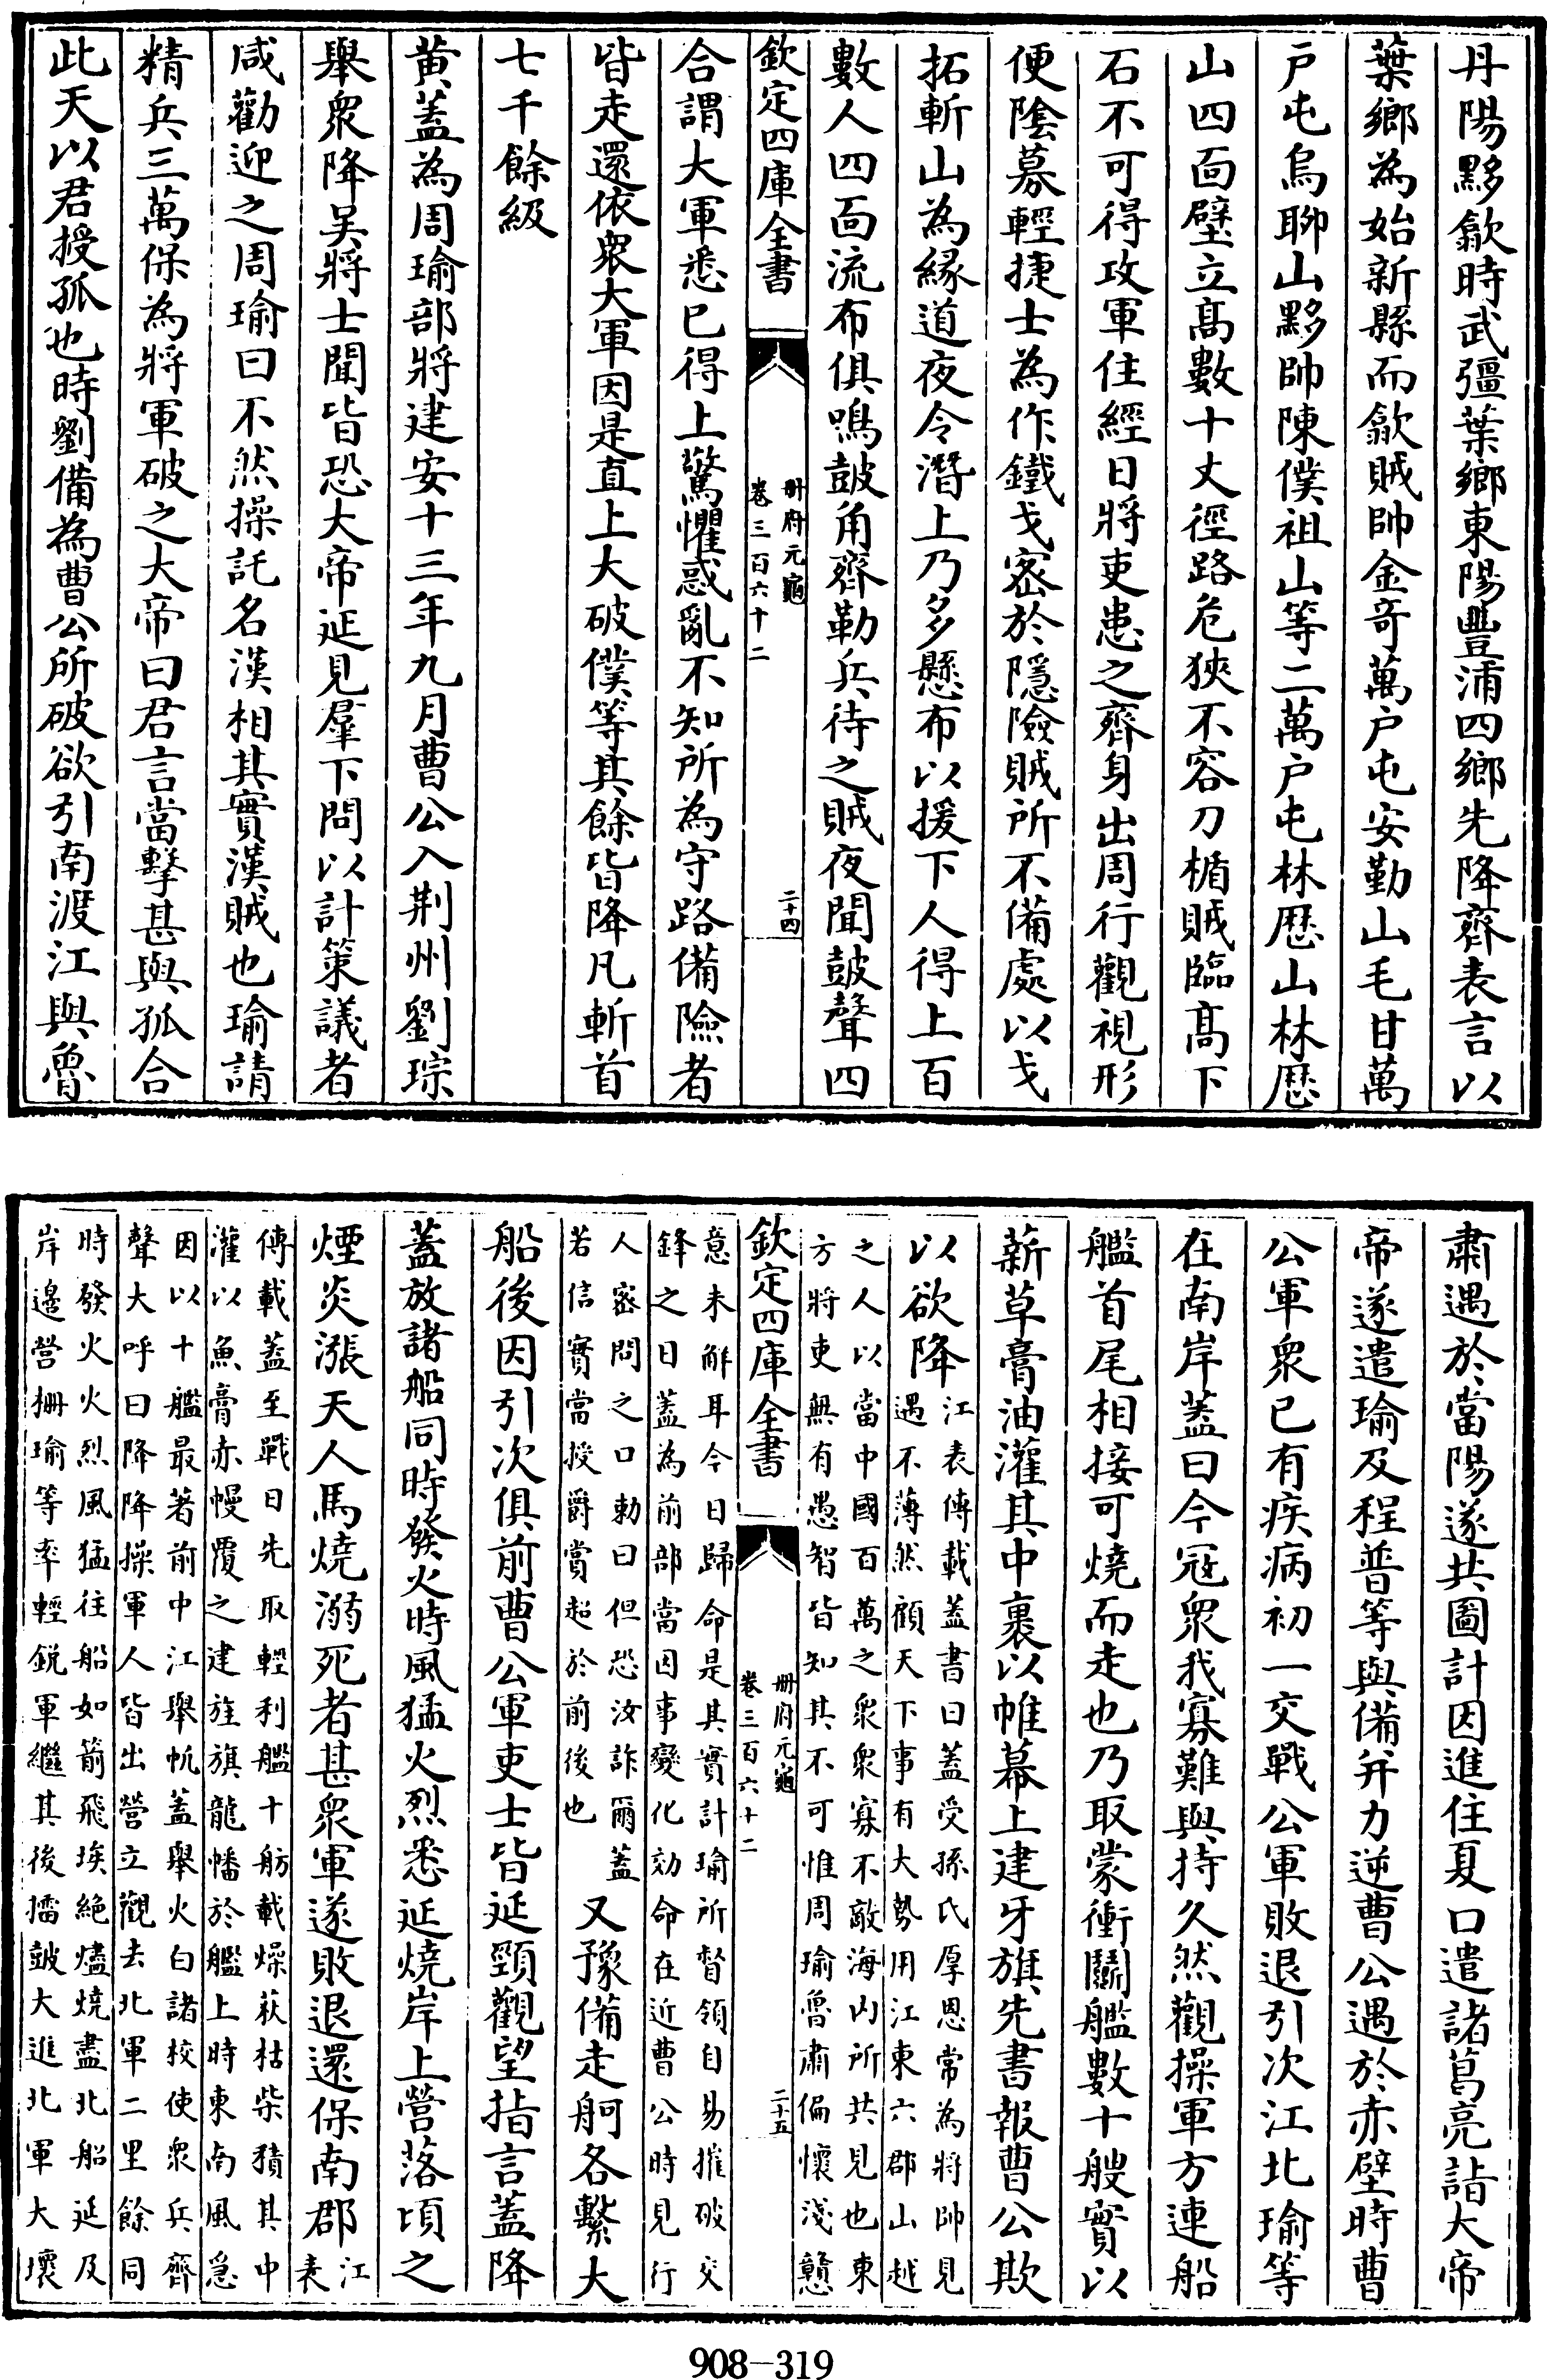 丹陽黟歙時武彊葉鄉東陽豐浦四鄉先降齊表言以
葉鄉為始新縣而歙賊帥金竒萬户屯安勤山毛甘萬
户屯烏聊山黟帥陳僕祖山等二萬户屯林歷山林歷
山四面壁立髙數十丈徑路危狹不容刀楯賊臨髙下
石不可得攻軍住經日將吏患之齊身出周行觀視形
便隂募輕捷士為作鐵戈宻於隱險賊所不備處以戈
拓斬山為緣道夜令潛上乃多懸布以援下人得上百
數人四面流布俱鳴鼓角齊勒兵待之賊夜聞鼓聲四
欽定四庫全書
册府元龜
卷三百六十二
二十四
合謂大軍悉已得上驚懼惑亂不知所為守路備險者
皆走還依衆大軍因是直上大破僕等其餘皆降凡斬首
七千餘級
黄蓋為周瑜部將建安十三年九月曹公入荆州劉琮
舉衆降吴將士聞皆恐大帝延見羣下問以計策議者
咸勸迎之周瑜曰不然操託名漢相其實漢賊也瑜請
精兵三萬保為將軍破之大帝曰君言當擊甚與孤合
此天以君授孤也時劉備為曹公所破欲引南渡江與魯
肅遇於當陽遂共圖計因進住夏口遣諸葛亮詣大帝
帝遂遣瑜及程普等與備并力逆曹公遇於赤壁時曹
公軍衆已有疾病初一交戰公軍敗退引次江北瑜等
在南岸蓋曰今冦衆我寡難與持久然觀操軍方連船
艦首尾相接可燒而走也乃取蒙衝鬭艦數十艘實以
薪草膏油灌其中裹以帷幕上建牙旗先書報曹公欺
以欲降
江表傳載蓋書曰蓋受孫氏厚恩常為將帥見
遇不薄然顧天下事有大勢用江東六郡山越
之人以當中國百萬之衆衆寡不敵海内所共見也東
方將吏無有愚智皆知其不可惟周瑜魯肅偏懷淺戇
欽定四庫全書
册府元龜
卷三百六十二
二十五
意未解耳今日歸命是其實計瑜所督領自易摧破交
鋒之日蓋為前部當因事變化効命在近曹公時見行
人宻問之口勅曰但恐汝詐爾蓋
若信實當授爵賞超於前後也
又豫備走舸各繫大
船後因引次俱前曹公軍吏士皆延頸觀望指言蓋降
蓋放諸船同時發火時風猛火烈悉延燒岸上營落頃之
煙炎漲天人馬燒溺死者甚衆軍遂敗退還保南郡
江
表
傳載蓋至戰日先取輕利艦十舫載燥荻枯柴積其中
灌以魚膏赤幔覆之建旌旗龍幡於艦上時東南風急
因以十艦最著前中江舉帆蓋舉火白諸校使衆兵齊
聲大呼曰降降操軍人皆出營立觀去北軍二里餘同
時發火火烈風猛往船如箭飛埃絶燼燒盡北船延及
岸邊營柵瑜等率輕鋭軍繼其後擂鼓大進北軍大壞
908-319